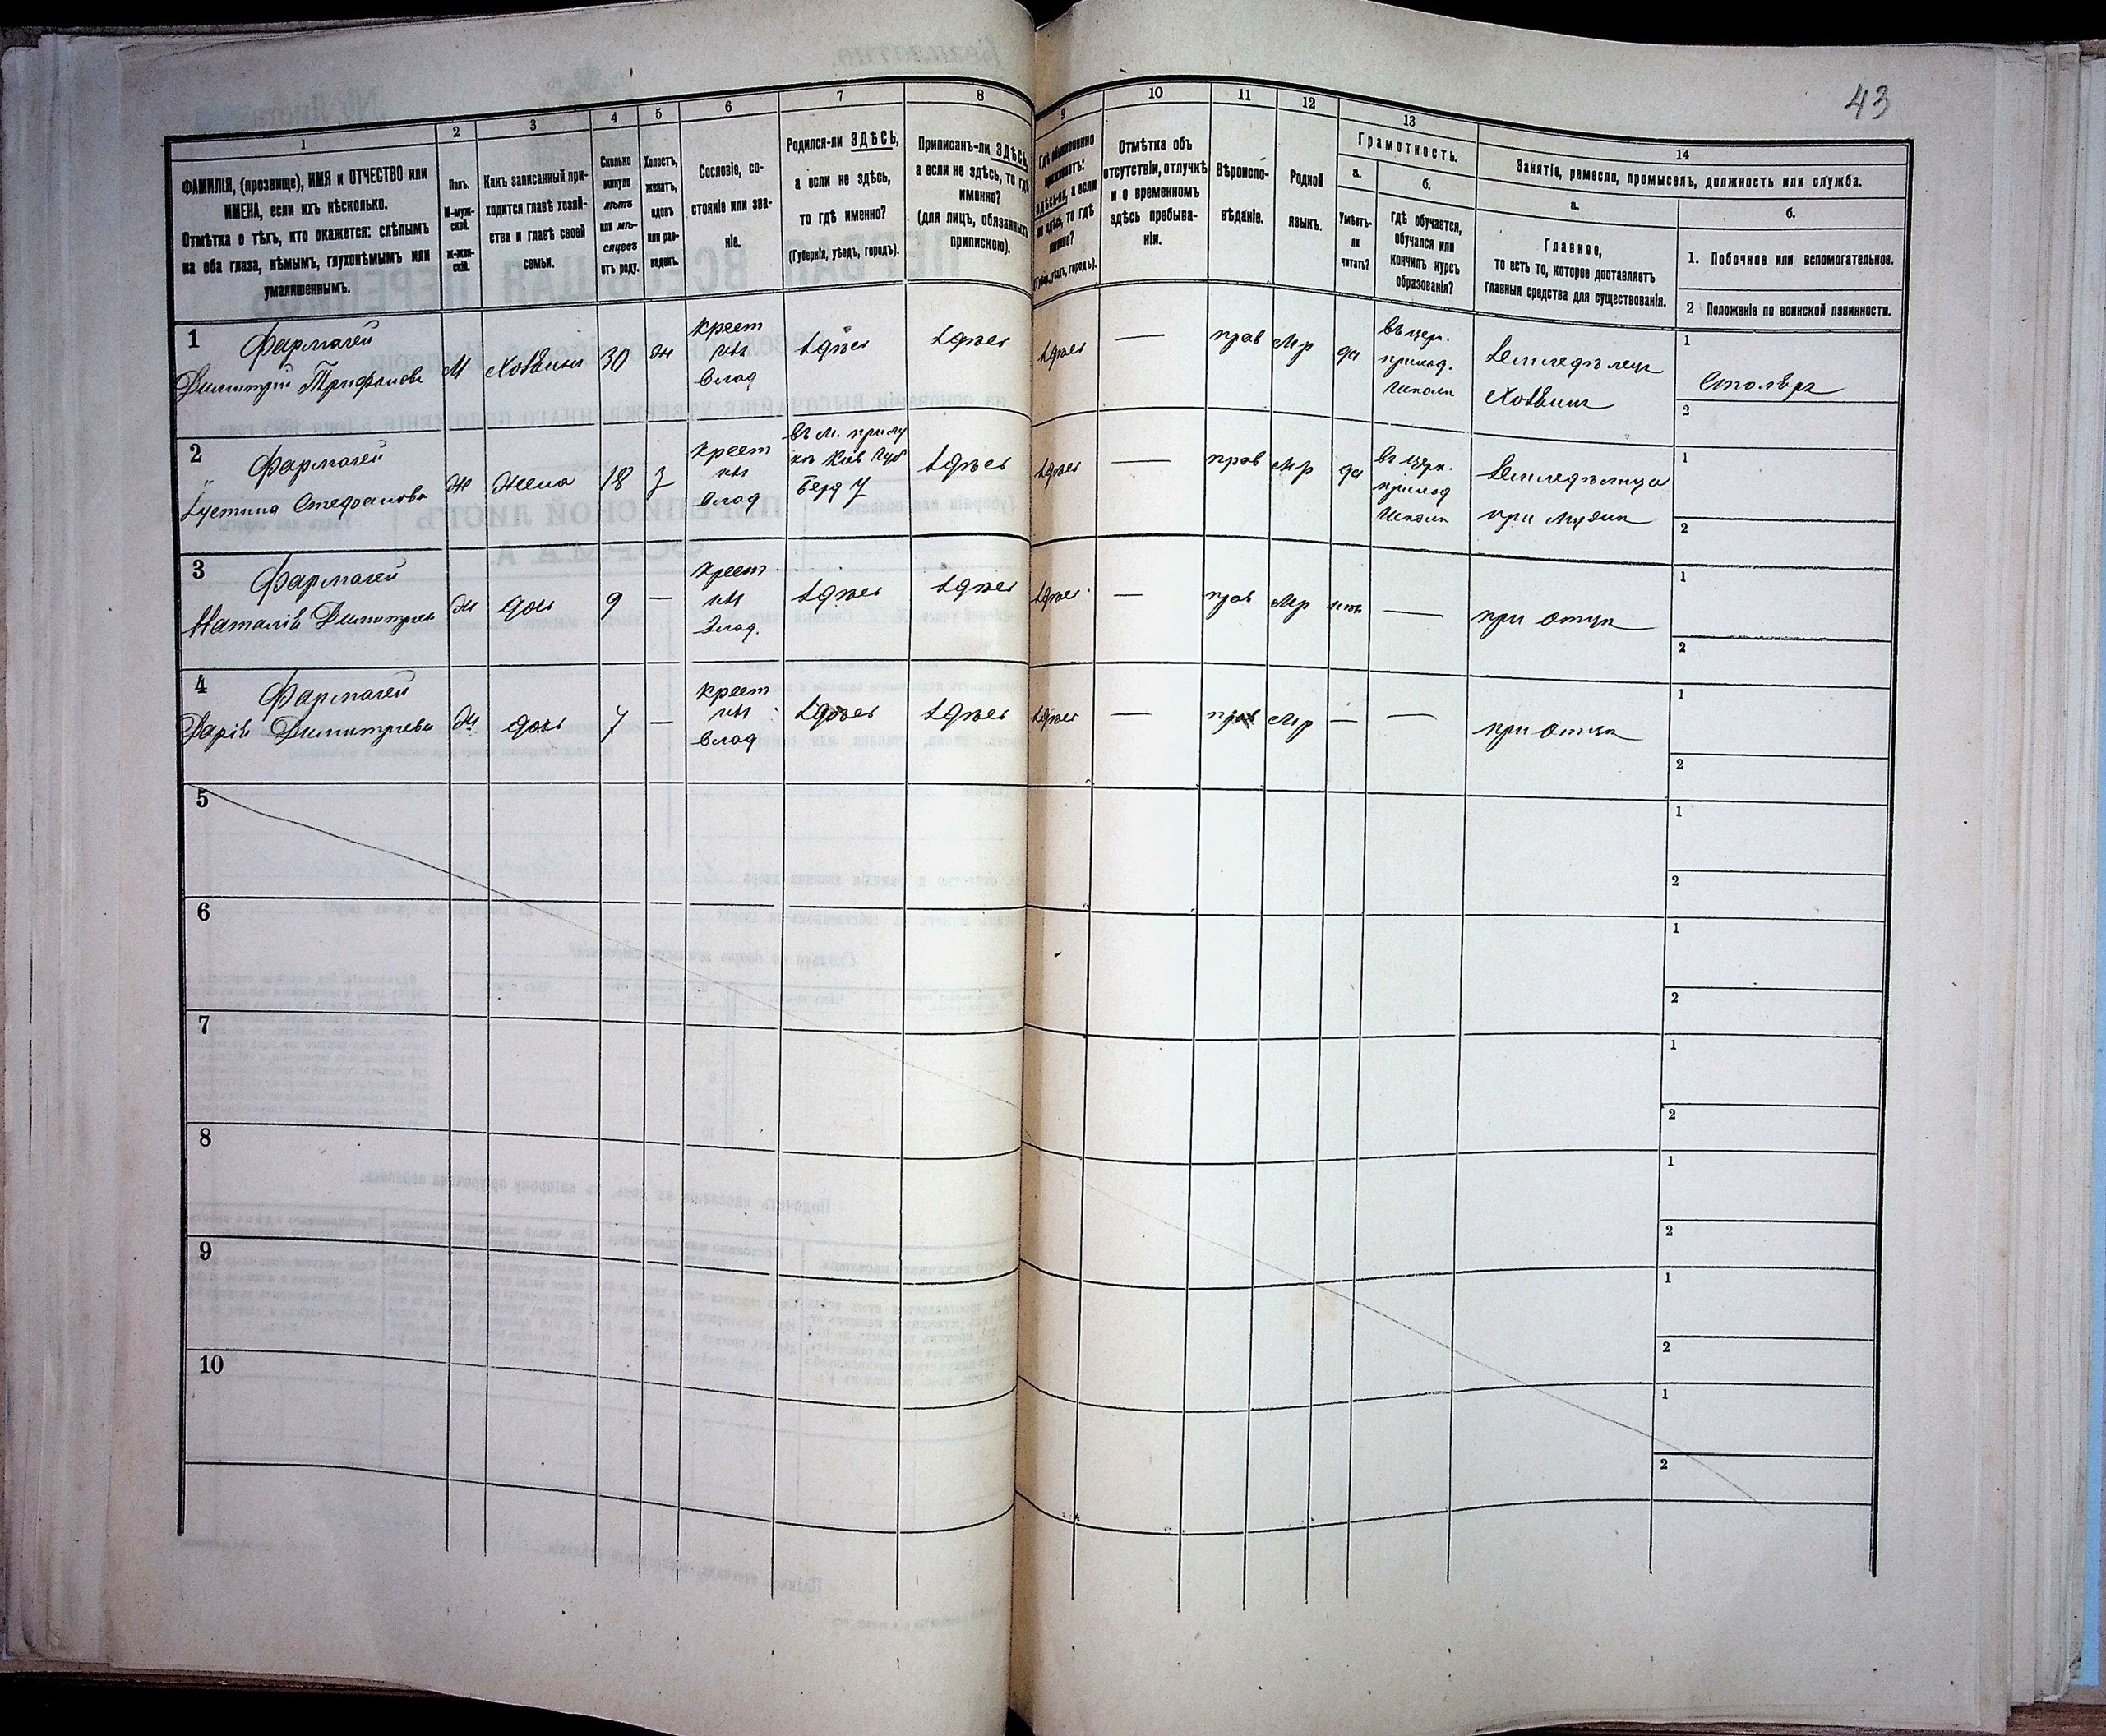 43
1
2
3
4
5
6
7
8
9
10
11
12
13
14
ФАМИЛІЯ, (прозвище), ИМЯ и ОТЧЕСТВО или
ИМЕНА, если ихъ нѣсколько.
Отмѣтка о тѣхъ, кто окажется: слѣпымъ
на оба глаза, нѣмымъ, глухонѣмымъ или
умалишеннымъ.
Полъ.
М-муж-
ской.
Ж-жен-
скій.
Какъ записанный при-
ходится главѣ хозяй-
ства и главѣ своей
семьи.
Сколько
минуло
лѣтъ
или мѣ-
сяцевъ
отъ роду.
Холостъ,
женатъ,
вдовъ
или раз-
веденъ.
Сословіе, со-
стояніе или зва-
ніе.
Родился-ли ЗДѢСЬ,
а если не здѣсь,
то гдѣ именно?
(Губернія, уѣздъ, городъ).
Приписанъ-ли ЗДѢСЬ,
а если не здѣсь, то гдѣ
именно?
(для лицъ, обязанныхъ
припискою).
Гдѣ обыкновенно
проживаетъ:
здѣсь-ли, а если
не здѣсь, то гдѣ
именно?
Отмѣтка объ
отсутствіи, отлучкѣ
и о временномъ
здѣсь пребыва-
ніи.
Вѣроиспо-
вѣданіе.
Родной
языкъ.
Грамотность.
а.
Умѣетъ-
ли
читать?
б.
гдѣ обучается,
обучался или
кончилъ курсъ
образованія?
Занятіе, ремесло, промыселъ, должность или служба.
а.
Главное,
то есть то, которое доставляетъ
главныя средства для существованія.
б.
1. Побочное или вспомогательное.
2 Положеніе по воинской повинности.
1 Фармагей
Димитрій Трифоновъ
М
Хозяинъ
30
ж
крест
изъ
влад
здѣсь
здѣсь
здѣсь
—
прав
Мр
да
въ церк.
приход.
школѣ
Земледѣлецъ
Хозяинъ
1
Столяръ
2
2 Фармагей
Іустина Стефанова
Ж
Жена
18
З
крест
изъ
влад
въ м. прилу
кѣ Кіев Губ
Берд У
здѣсь
здѣсь
—
прав
Мр
да
въ церк.
приход
школѣ
Земледѣлица
при мужѣ
1
2
3 Фармагей
Наталія Димитріев
Ж
дочь
9
—
крест
изъ
влад.
здѣсь
здѣсь
здѣсь
—
прав
Мр
нѣтъ
—
при отцѣ
1
2
4 Фармагей
Дарія Димитріева
Ж
дочь
7
—
крест
изъ
влад
здѣсь
здѣсь
здѣсь
—
прав
Мр
—
—
при отцѣ
1
2
5
1
2
6
1
2
7
1
2
8
1
2
9
1
2
10
1
2